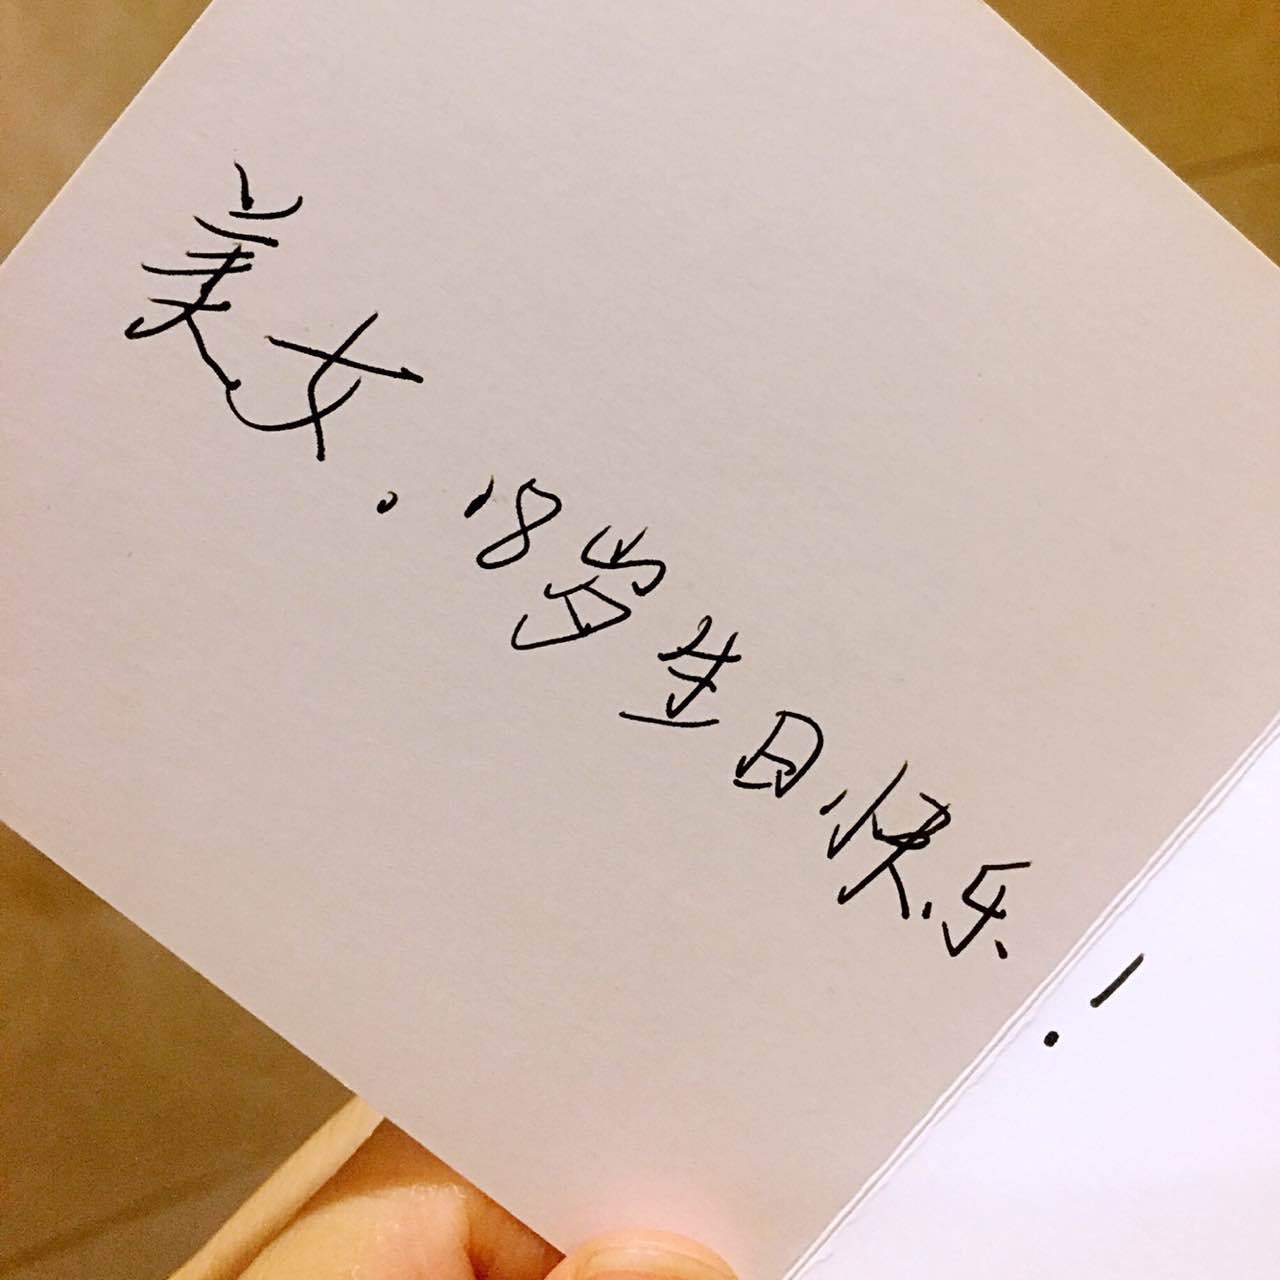 美女。18岁生日快乐!